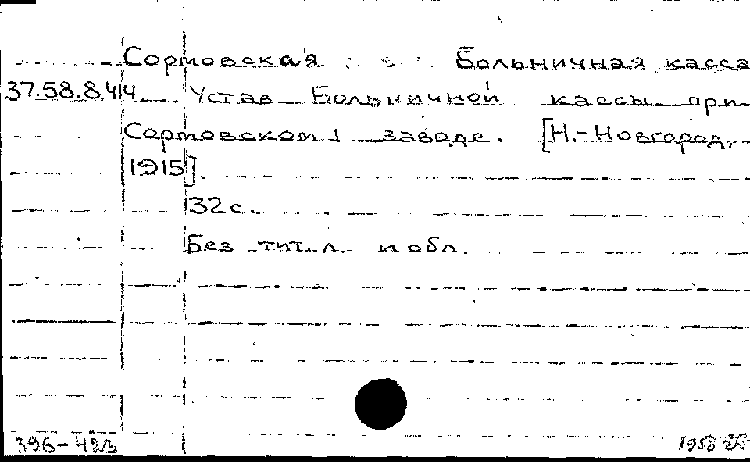 Сормовская Больничная касса
37.58.8.414 Устав Больничной кассы при
Сормовском заводе. [Н.-Новгород,
1915].
32 с.
Без тит. л. и обл.
396-42
1953